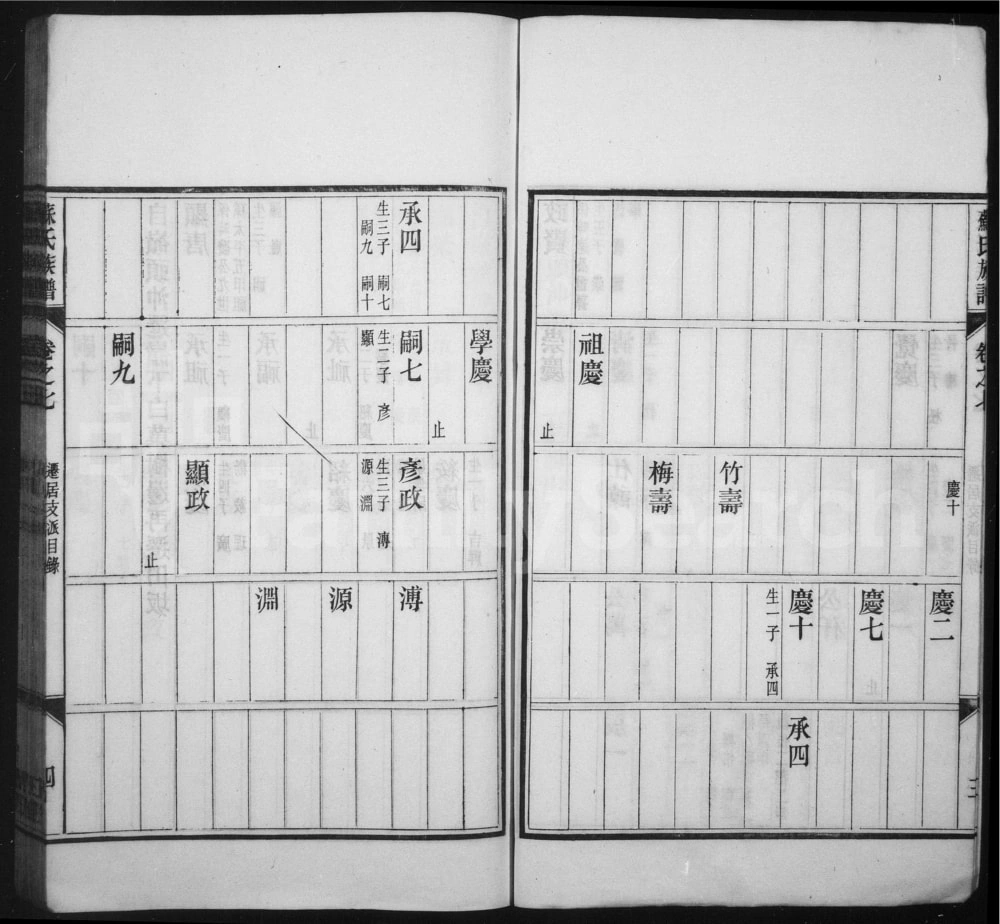 蘇氏族譜
卷之七
三
慶十
慶二
慶七
慶十
生一子 承四
承四
竹壽
梅壽
祖慶
止
學慶
止
承四
生三子 嗣七
嗣九 嗣十
嗣七
生二子 彥
顯
彥政
生三子 溥
源 淵
溥
源
淵
顯政
止
嗣九
蘇氏族譜
卷之七
遷居支派目錄
四